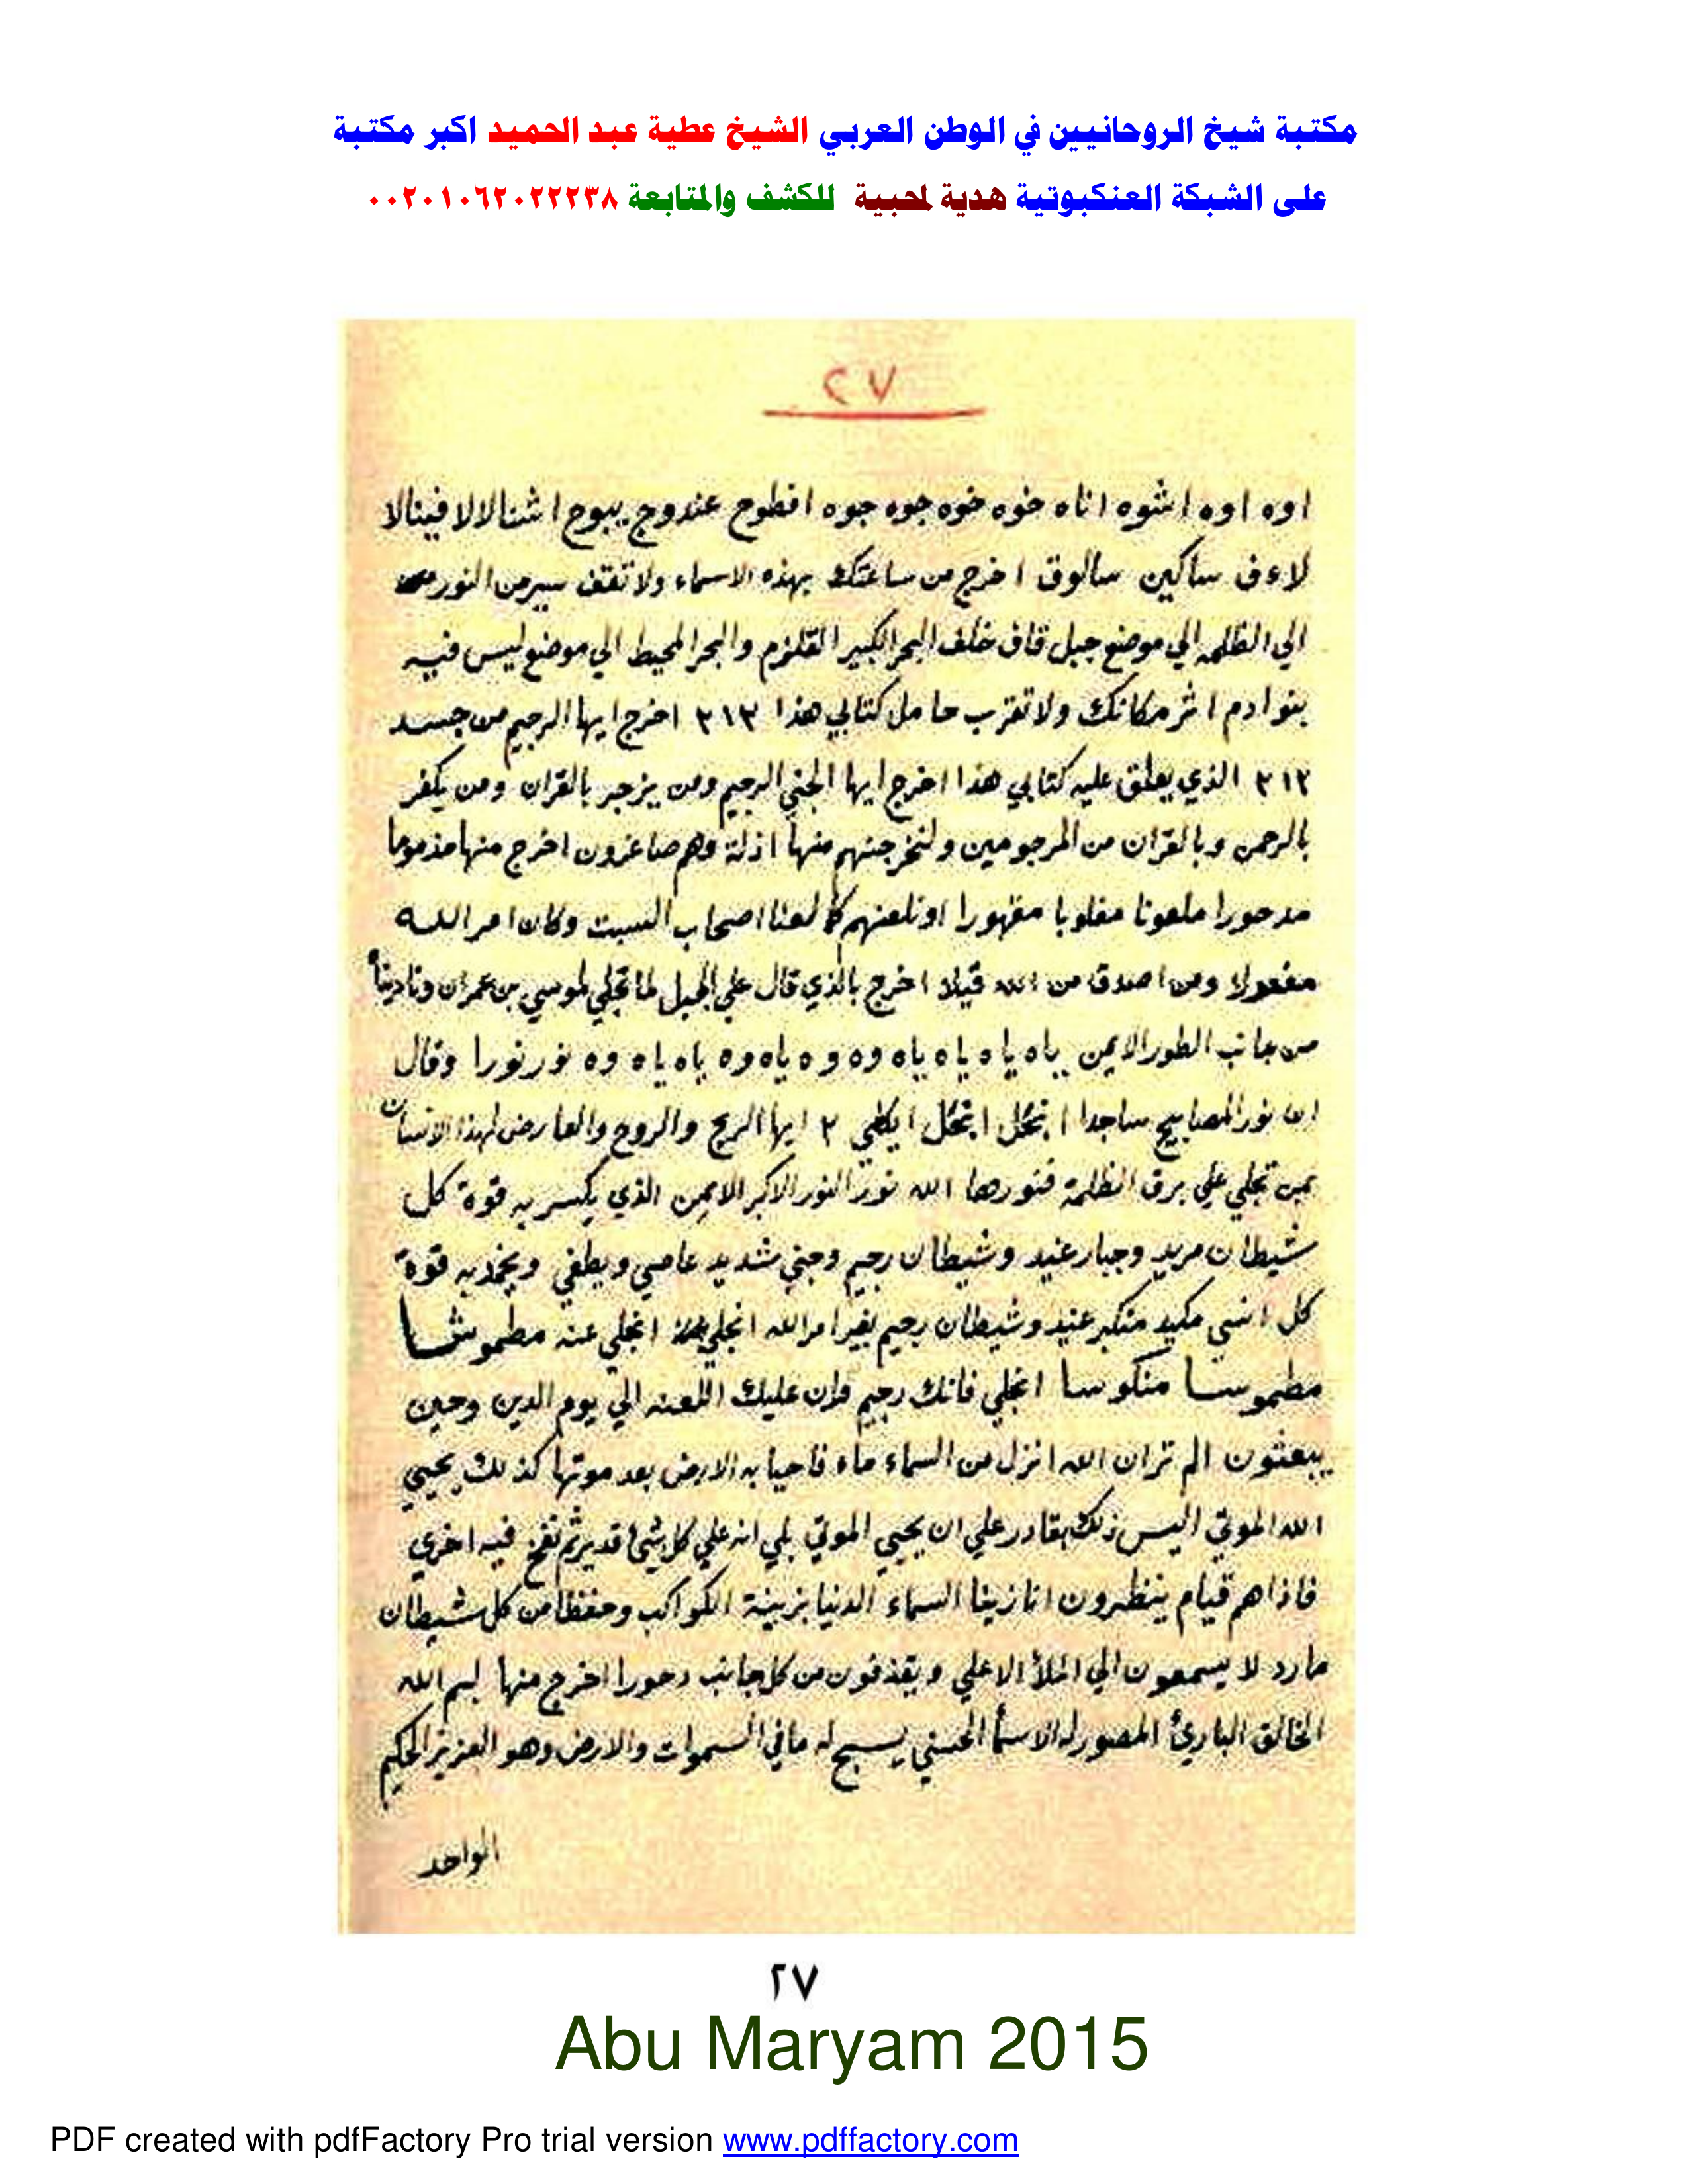 مكتبة شيخ الروحانيين في الوطن العربي الشيخ عطية عبد الحميد اكبر مكتبة
على الشبكة العنكبوتية هدية لمحبيه للكشف والمتابعة ٠٠٢٠١٠٦٢٠٢٢٢٣٨
٢٧
اوه اوه اشوه اناه خوه خوه جوه جوه افطوح عندوج يبوح اشنالالا فينالا
لاءف ساكين سالوق اخرج من ساعتك بهذه الاسماء ولا تقف سير من النور
الي الظلمه الي موضع جبل قاف خلف البحر الكبير القلزم والبحر المحيط الي موضع ليس فيه
بنو ادم اثر مكانك ولا تقرب حامل كتابي هذا ٢١٣ اخرج ايها الرجيم من جسد
٢١٣ الذي يعلق عليه كتابي هذا اخرج ايها الجني الرجيم ومن يزجر بالقران ومن يكفر
بالرحمن وبالقران من المرجومين ولنخرجنهم منها اذلة وهم صاغرون اخرج منها مذموما
مدحورا ملعونا مغلوبا مقهورا او نلعنهم كما لعنا اصحاب السبت وكان امر الله
مفعولا ومن اصدق من الله قيلا اخرج بالذي قال علي الجبل لما تجلي لموسي بن عمران وناديناه
من جانب الطور الايمن ياه ياه ياه ياه وه وه ياه وه ياه ياه وه نور نورا وقال
ابن نور المصابيح ساجدا انحكل انحكل ايكلي ٢ ايها الريح والروح والعارض لهذا الانسان
بمن تجلي علي برق الظلمة فنورها الله نور النور الاكبر الايمن الذي يكسر به قوة كل
شيطان مريد وجبار عنيد وشيطان رجيم وجني شديد عاصي ويطفي ويخمد به قوة
كل انسي مكيد متكبر عنيد وشيطان رجيم بغير امر الله انجلي انجلي عنه مطموشا
مطموسا منكوسا انجلي فانك رجيم وان عليك اللعنه الي يوم الدين وحين
يبعثون الم تر ان الله انزل من السماء ماء فاحيا به الارض بعد موتها كذلك يحيي
الله الموتي اليس ذلك بقادر علي ان يحيي الموتي بلي انه علي كل شئ قدير ثم نفخ فيه اخري
فاذا هم قيام ينظرون انا زينا السماء الدنيا بزينة الكواكب وحفظا من كل شيطان
مارد لا يسمعون الي الملأ الاعلي ويقذفون من كل جانب دحورا اخرج منها بسم الله
الخالق البارئ المصور له الاسمأ الحسني يسبح له ما في السموات والارض وهو العزيز الحكيم
الواحد
٢٧
Abu Maryam 2015
PDF created with pdfFactory Pro trial version www.pdffactory.com